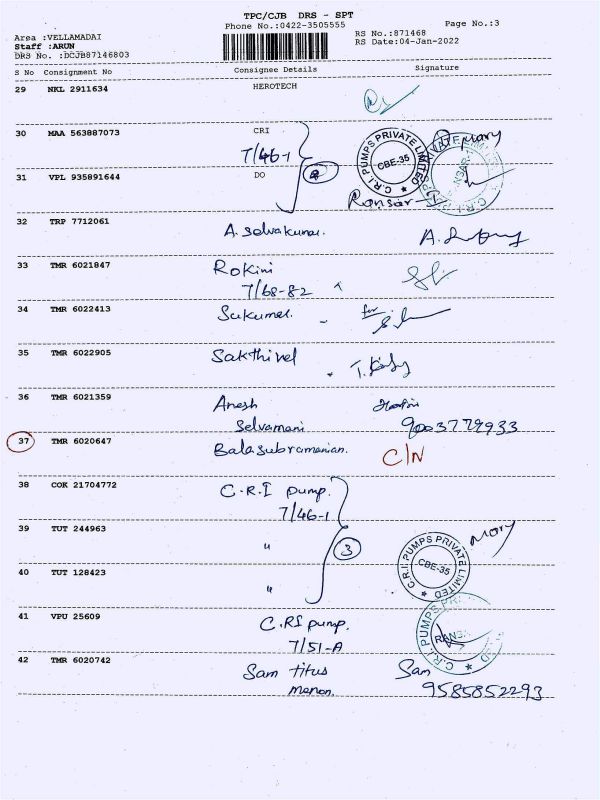 TPC/CJB DRS - SPT
Phone No.:0422-3505555
Page No.:3
Area :VELLAMADAI
Staff :ARUN
DRS No. :DCJB87146803
RS No.:871468
RS Date:04-Jan-2022
S No Consignment No Consignee Details Signature
29 NKL 2911634 HEROTECH
30 MAA 563887073 CRI
7/46-1
C.R.I PUMPS PRIVATE LIMITED
CBE-35
31 VPL 935891644 DO
32 TRP 7712061 A. Selvakumar.
33 TMR 6021847 Rokini
7/68-82
34 TMR 6022413 Sukumar. for
35 TMR 6022905 Sakthivel
36 TMR 6021359 Anesh
Selvamani 9003779933
37 TMR 6020647 Balasubramanian. C/N
38 COK 21704772 C.R.I pump.
7/46-1
39 TUT 244963 "
3
C.R.I PUMPS PRIVATE LIMITED
CBE-35
40 TUT 128423 "
41 VPU 25609 C.RI pump.
7/51-A
42 TMR 6020742 Sam titus Sam
menon. 9585852293